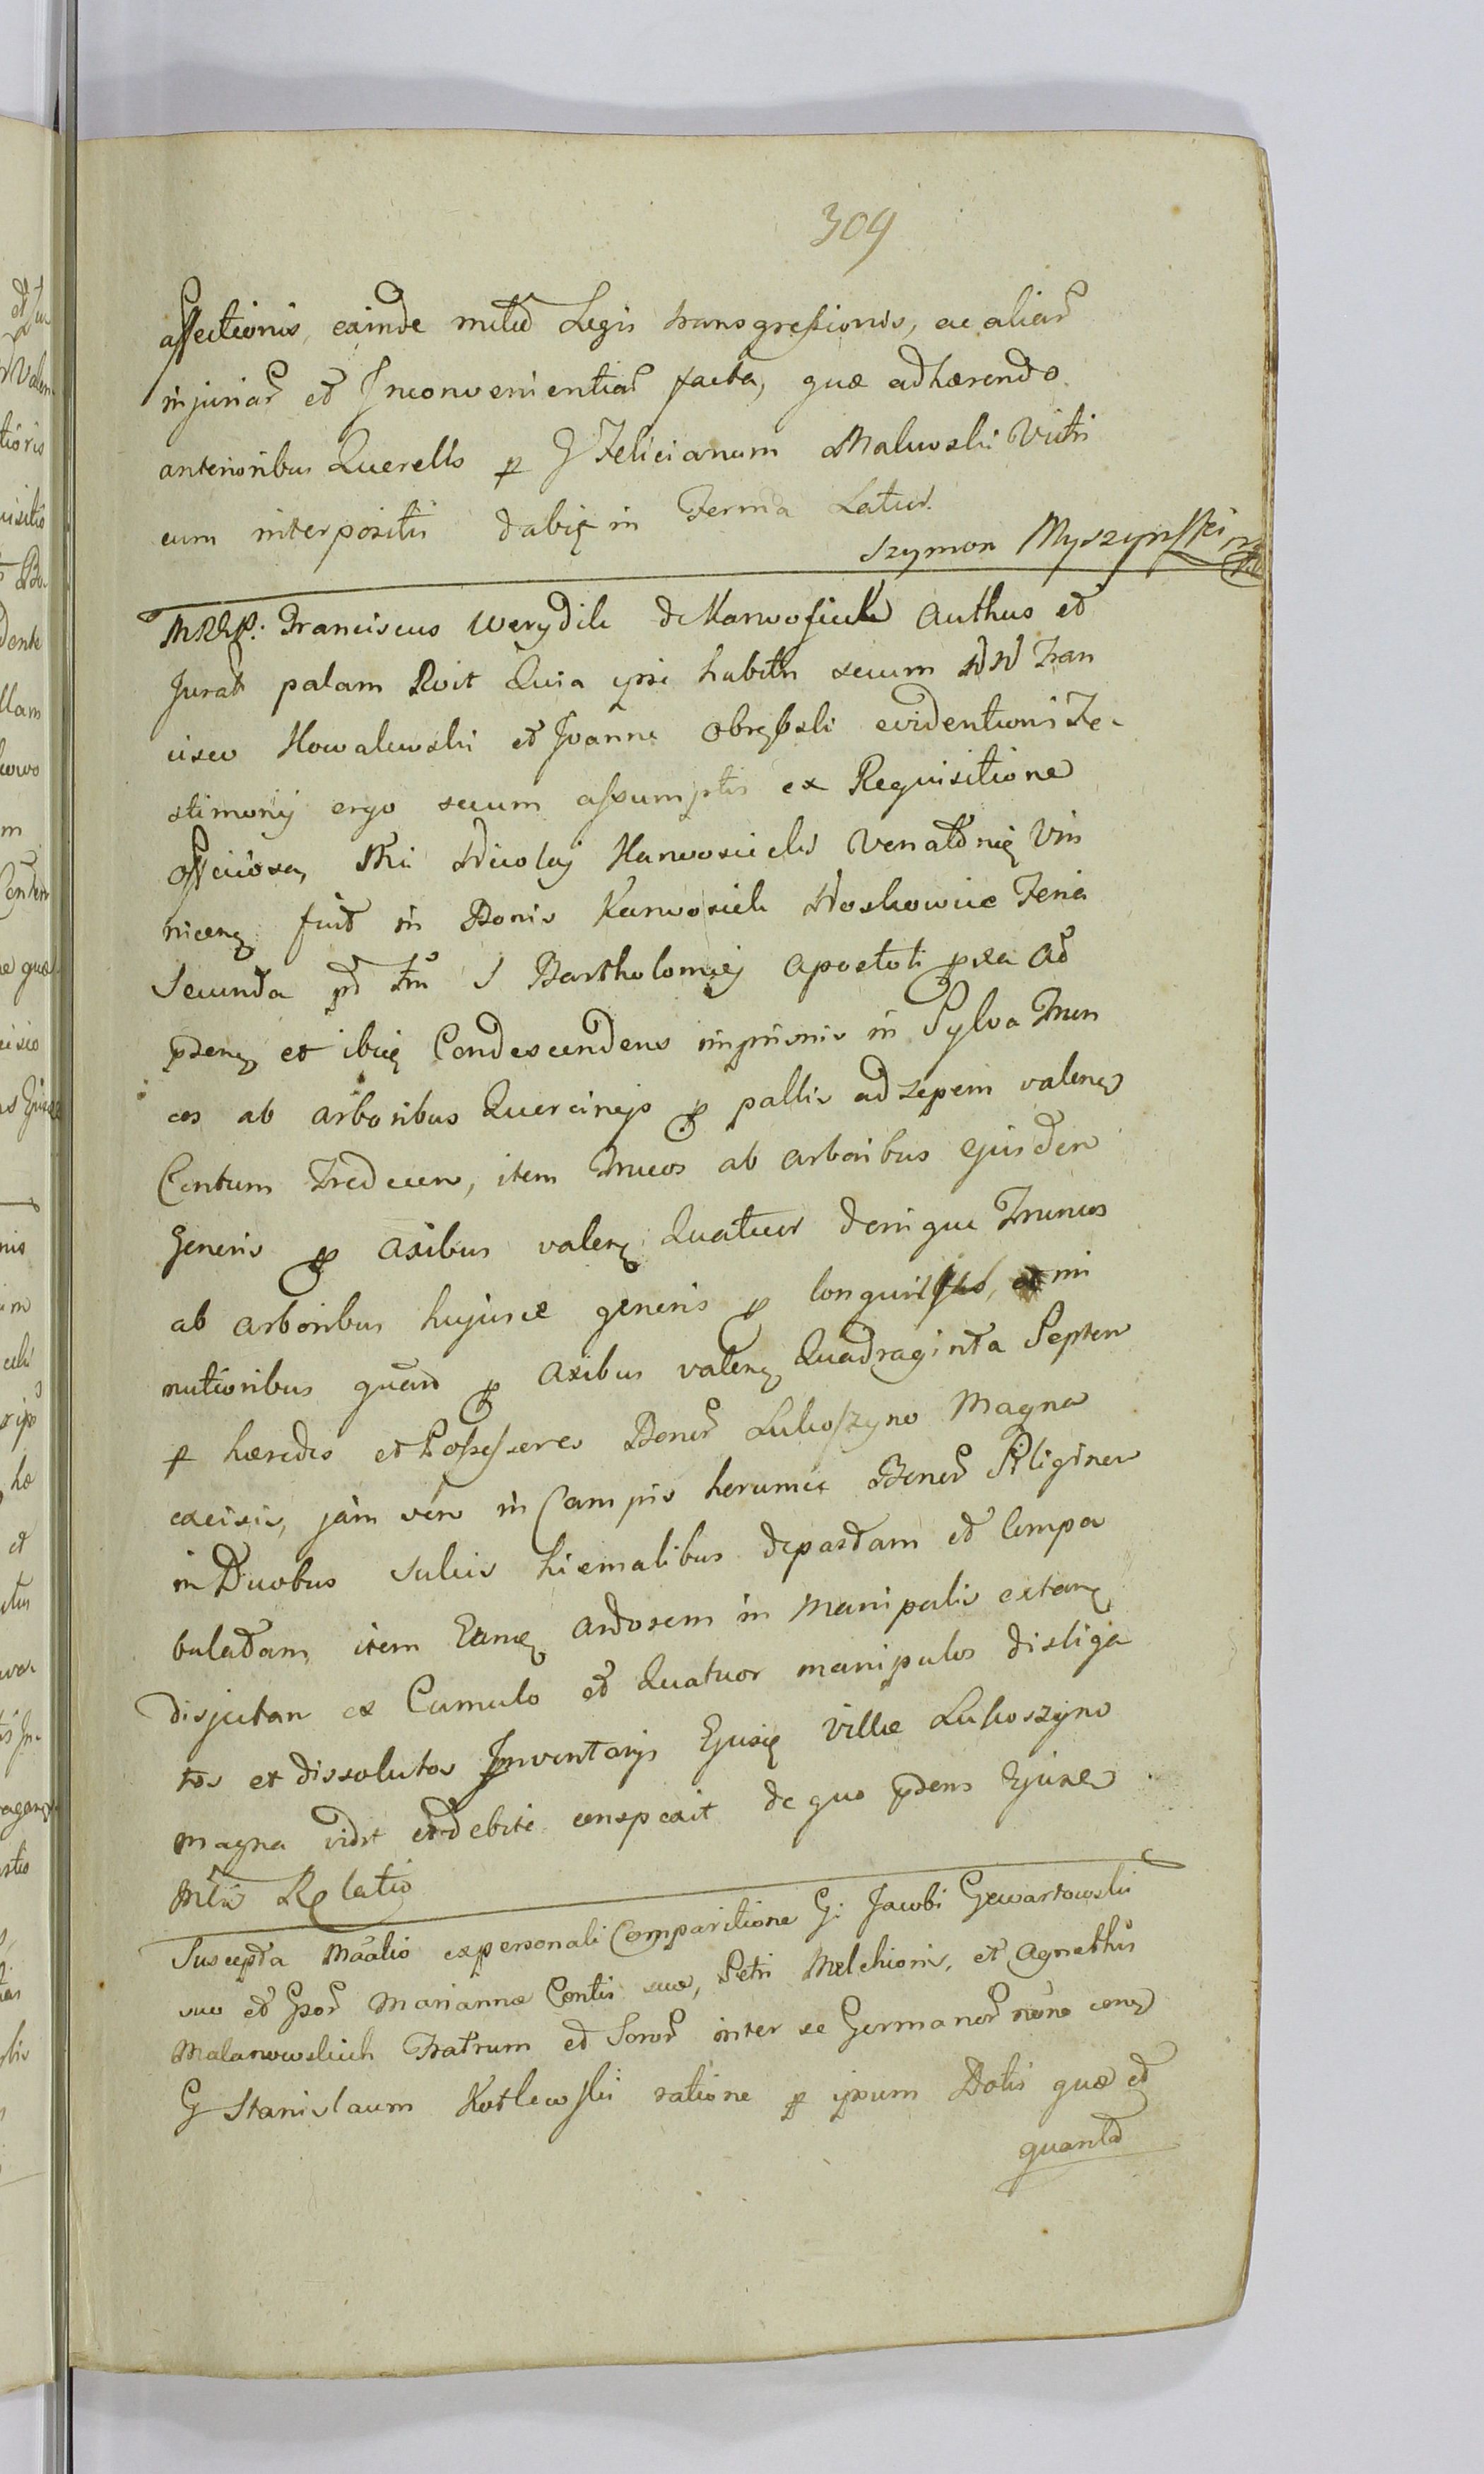 309
affectionis, exinde mulcta Legis transgressionis, ac aliar
injuriar et Inconvenientiar facta, quæ adhærendo
anterioribus Querelis p G Felicianum Malewski Victri
cum interpositis dabit in Ferma Latius.
Szymon Myszynski
MRRP: Franciscus Werydik de Karwosieki Authus et
Jurat palam Rcit Quia ipse habitis secum NN Fran
cisco Kowalewski et Joanne Obrębski evidentioris Te
stimonij ergo secum assumptis ex Requisitione
officiosa Mci Nicolaj Karwosiecki Venatoris Vin
nicen fuit in Bonis Karwosieki Noskowice Feria
Secunda pt fm S Bartholomæj Apostoli pxa Ad
pden et ibiq Condescendens imprimis in Sylva Trun
cos ab arboribus Quercineis p pallis ad sepem valen
Centum Tredecem, item Truncos ab arboribus ejusdem
Generis p axibus valen Quatuor denique Truncos
ab arboribus hujusce generis p longuri et mi
nutioribus quam p axibus valen Quadraginta Septem
p hæredes et Possessores Bonor Lukoszyno Magna
excisis, jam vero in Campis horumce Bonor Siliginem
in Duobus sulcis hiemalibus depastam et Compa
bulatam, item Eand ardorem in Manipulis extan
disjectam ex Cumulo et Quatuor manipulos disliga
tos et dissolutos Inventarijs Ejusd Villæ Lukoszyno
magna vidit et debite conspexit de quo pdens Ejusd
Mlis Relatio
Suscepta Maalis ex personali Comparitione G: Jacobi Gewartowski
suo et Gpor Mariannæ Contis suæ, Petri Melchioris, et Agnethis
Malanowskich Fratrum et Soror inter se Germanor nóne cong
G Stanislaum Kotlewski ratione p ipsum Dotis quæ et
quanta